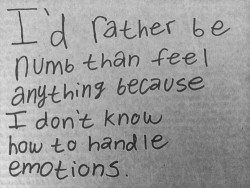 I'd rather be
numb than feel
anything because
I don't know
how to handle
emotions.